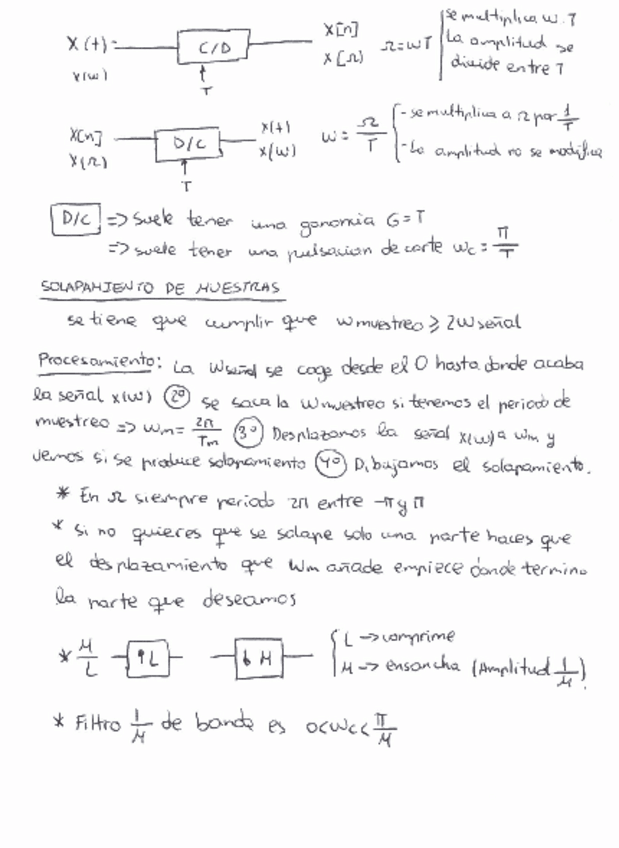 X(t) C/D X[n] Ω=ωT se multiplica ω.T
X(ω) X[Ω] La amplitud se
T divide entre T
X[n] D/C X(t) ω = Ω/T - se multiplica a Ω por 1/T
X(Ω) X(ω) - La amplitud no se modifica
T
D/C => suele tener una ganancia G=T
=> suele tener una pulsacion de corte ωc = π/T
SOLAPAMIENTO DE MUESTRAS
se tiene que cumplir que ωmuestreo ≥ 2ωseñal
Procesamiento: La ωseñal se coge desde el 0 hasta donde acaba
la señal x(ω) 2º se saca la ωmuestreo si tenemos el periodo de
muestreo => ωm = 2π/Tm 3º Desplazamos la señal x(ω) a ωm y
vemos si se produce solapamiento 4º Dibujamos el solapamiento.
* En Ω siempre periodo 2π entre -π y π
* si no quieres que se solape solo una parte haces que
el desplazamiento que ωm añade empiece donde termino
la parte que deseamos
* M/L ↑L ↓M L -> comprime
M -> ensancha (Amplitud 1/M).
* Filtro 1/M de banda es 0<ωc<π/M